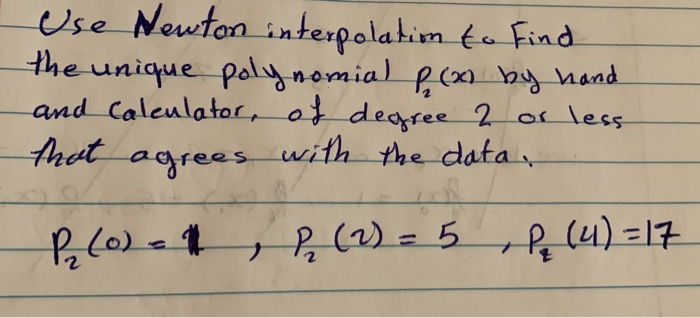 Use Newton interpolation to Find
the unique polynomial P₂(x) by hand
and Calculator, of degree 2 or less
that agrees with the data.
P₂(0) = 1 , P₂(2) = 5 , P₂(4) = 17